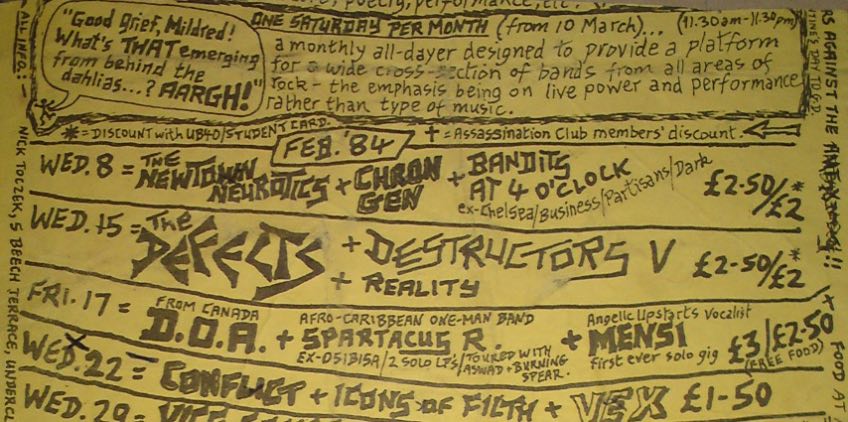 poetry, performance, etc.
"Good grief, Mildred!
What's THAT emerging
from behind the
dahlias...? AARGH!"
ONE SATURDAY PER MONTH (from 10 March)... (11.30am-11.30pm)
a monthly all-dayer designed to provide a platform
for a wide cross-section of bands from all areas of
rock - the emphasis being on live power and performance
rather than type of music.
* = DISCOUNT with UB40/STUDENT CARD.
FEB. '84
+ = Assassination Club members' discount.
WED. 8 = THE NEWTOWN NEUROTICS + CHRON GEN + BANDITS AT 4 O'CLOCK
ex-Chelsea/Business/Partisans/Dark
£2-50/£2*
WED. 15 = The DEFECTS + DESTRUCTORS V
+ REALITY
£2-50/£2*
FRI. 17 = FROM CANADA D.O.A. + AFRO-CARIBBEAN ONE-MAN BAND SPARTACUS R.
EX-OSIBISA/2 SOLO LP's/TOURED WITH ASWAD + BURNING SPEAR.
+ Angelic Upstarts Vocalist MENSI
first ever solo gig
£3/£2-50
(FREE FOOD)
WED. 22 = CONFLICT + ICONS OF FILTH + VEX £1-50
WED. 29 =
ALL INFO: - NICK TOCZEK, 5 BEECH TERRACE, UNDERCL
RS AGAINST THE
+ FOOD AT